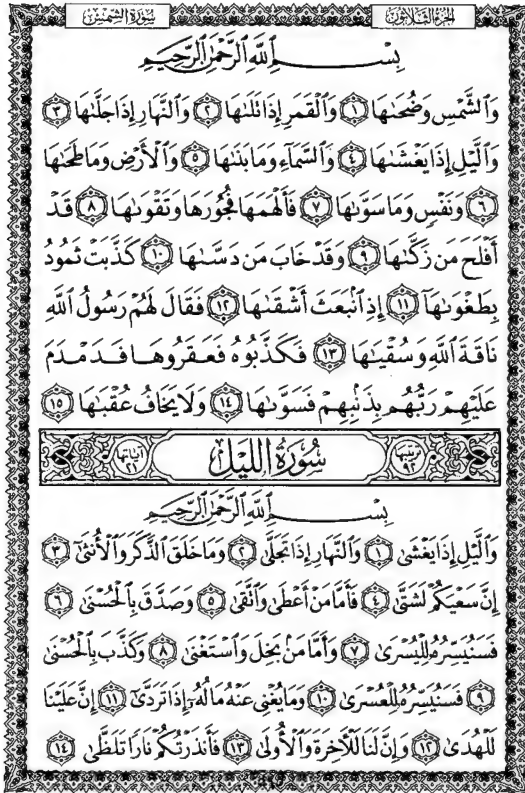 الجُزْءُ الثَّلَاثُونَ سُورَةُ الشَّمْسِ
بِسْمِ ٱللَّهِ ٱلرَّحْمَٰنِ ٱلرَّحِيمِ
وَٱلشَّمْسِ وَضُحَىٰهَا ١ وَٱلْقَمَرِ إِذَا تَلَىٰهَا ٢ وَٱلنَّهَارِ إِذَا جَلَّىٰهَا ٣
وَٱلَّيْلِ إِذَا يَغْشَىٰهَا ٤ وَٱلسَّمَآءِ وَمَا بَنَىٰهَا ٥ وَٱلْأَرْضِ وَمَا طَحَىٰهَا
٦ وَنَفْسٍ وَمَا سَوَّىٰهَا ٧ فَأَلْهَمَهَا فُجُورَهَا وَتَقْوَىٰهَا ٨ قَدْ
أَفْلَحَ مَن زَكَّىٰهَا ٩ وَقَدْ خَابَ مَن دَسَّىٰهَا ١٠ كَذَّبَتْ ثَمُودُ
بِطَغْوَىٰهَآ ١١ إِذِ ٱنۢبَعَثَ أَشْقَىٰهَا ١٢ فَقَالَ لَهُمْ رَسُولُ ٱللَّهِ
نَاقَةَ ٱللَّهِ وَسُقْيَٰهَا ١٣ فَكَذَّبُوهُ فَعَقَرُوهَا فَدَمْدَمَ
عَلَيْهِمْ رَبُّهُم بِذَنۢبِهِمْ فَسَوَّىٰهَا ١٤ وَلَا يَخَافُ عُقْبَٰهَا ١٥
ترتيبها ٩٢ سُورَةُ اللَّيْلِ آياتها ٢١
بِسْمِ ٱللَّهِ ٱلرَّحْمَٰنِ ٱلرَّحِيمِ
وَٱلَّيْلِ إِذَا يَغْشَىٰ ١ وَٱلنَّهَارِ إِذَا تَجَلَّىٰ ٢ وَمَا خَلَقَ ٱلذَّكَرَ وَٱلْأُنثَىٰٓ ٣
إِنَّ سَعْيَكُمْ لَشَتَّىٰ ٤ فَأَمَّا مَنْ أَعْطَىٰ وَٱتَّقَىٰ ٥ وَصَدَّقَ بِٱلْحُسْنَىٰ ٦
فَسَنُيَسِّرُهُۥ لِلْيُسْرَىٰ ٧ وَأَمَّا مَنۢ بَخِلَ وَٱسْتَغْنَىٰ ٨ وَكَذَّبَ بِٱلْحُسْنَىٰ
٩ فَسَنُيَسِّرُهُۥ لِلْعُسْرَىٰ ١٠ وَمَا يُغْنِى عَنْهُ مَالُهُۥٓ إِذَا تَرَدَّىٰٓ ١١ إِنَّ عَلَيْنَا
لَلْهُدَىٰ ١٢ وَإِنَّ لَنَا لَلْءَاخِرَةَ وَٱلْأُولَىٰ ١٣ فَأَنذَرْتُكُمْ نَارًا تَلَظَّىٰ ١٤